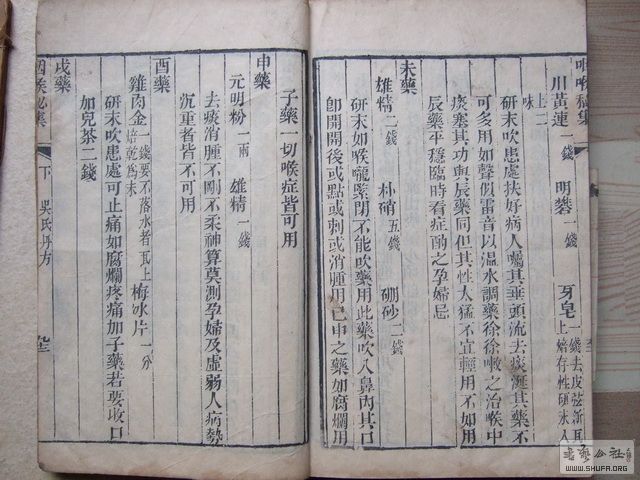 川黃連一錢 明礬一錢 牙皂一錢去皮弦新瓦上焙存性研末入
上二味
研末吹患處扶好病人囑其垂頭流去痰涎其藥不
可多用如聲假雷音以温水調藥徐徐嗽之治喉中
痰塞其功與辰藥同但其性太猛不宜輕用不如用
辰藥平穩臨時看症酌之孕婦忌
未藥
雄精二錢 朴硝五錢 硼砂二錢
研末如喉嚨緊閉不能吹藥用此藥吹入鼻內其口
卽開開後或點或刺或消腫用已申之藥如腐爛用
子藥一切喉症皆可用
申藥
元明粉一兩 雄精一錢
去痰消腫不剛不柔神算莫測孕婦及虛弱人病勢
沉重者皆不可用
酉藥
雞肉金一錢要不落水者瓦上焙乾為末 梅冰片一分
研末吹患處可止痛如腐爛疼痛加子藥若要收口
加兒茶二錢
戌藥
下
吳氏丹方
書藝公社
WWW.SHUFA.ORG